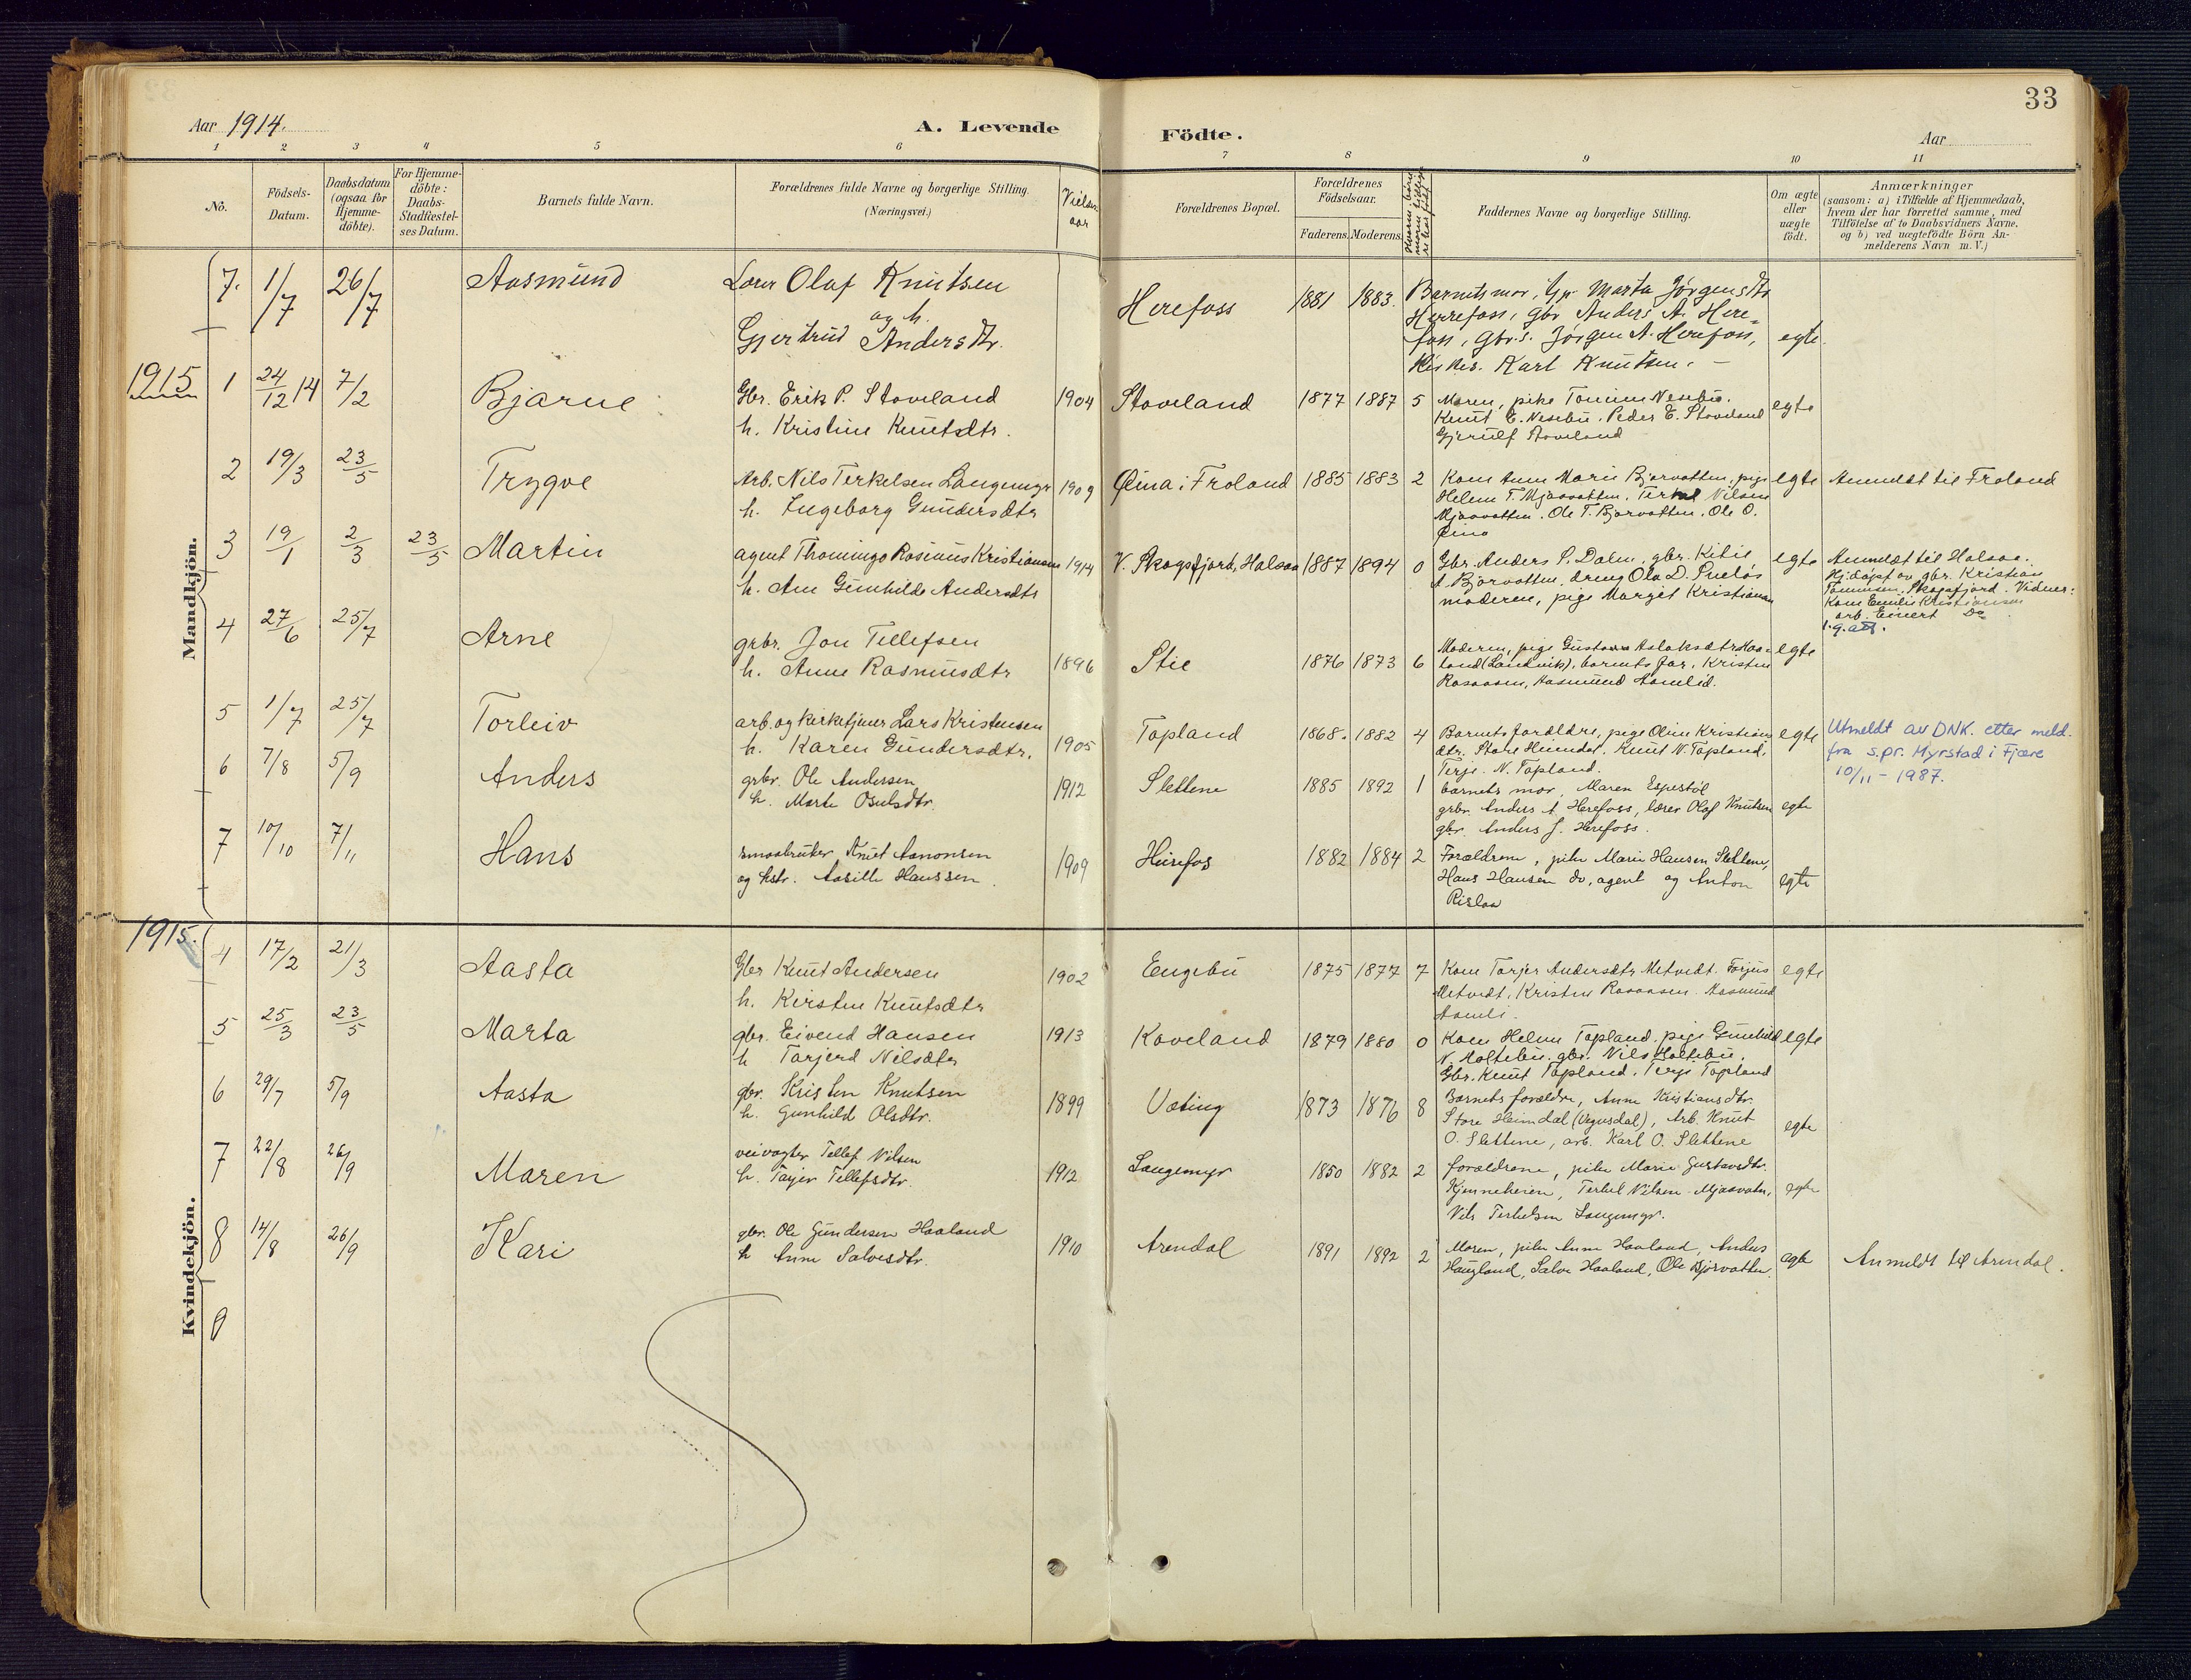 33
Aar 1914.
A. Levende
Födte.
Aar
1 2 3 4 5 6 7 8 9 10 11
No.
Födsels-
Datum.
Daabsdatum
(ogsaa for
Hjemme-
döbte).
For Hjemme-
döbte:
Daabs-
Stadfæstel-
ses Datum.
Barnets fulde Navn.
Forældrenes fulde Navne og borgerlige Stilling.
(Næringsvei.)
Vielses
aar
Forældrenes Bopæl.
Forældrenes
Födselsaar.
Faderens. Moderens.
Faddernes Navne og borgerlige Stilling.
Om ægte
eller
uægte
födt.
Anmærkninger
(saasom: a) i Tilfælde af Hjemmedaab,
hvem der har forrettet samme, med
Tilföielse af to Daabsvidners Navne,
og b) ved uægtefödte Börn An-
melderens Navn m. V.)
Mandkjön.
7. 1/7 26/7 Aasmund Lærer Olaf Knutsen
og h.
Gjertrud Andersdtr.
Herefoss 1881 1883.
Barnets mor, Marta Jörgensdtr
Herrefoss, gbr Anders A. Here-
foss, Gbr.s. Jörgen A. Herefoss,
Karl Knutsen. –
egte.
1915
1 24/12 14 7/2 Bjarne Gbr. Erik P. Stoveland
h. Kristine Knutsdtr.
1904 Stoveland 1877 1887 5
Moren, pike Tomine Nesebu.
Knut E. Nesebu. Peder E. Stoveland
Gjerulf Stoveland
egte
2 19/3 23/5 Trygve Arb. Nils Terkelsen Langemyr
h. Ingeborg Gundersdtr
1909 Öina i Froland 1885 1883 2
Kone Anne Marie Bjorvatten, pige
Helene T. Mjaavatten. Terkel Nilsen
Mjaavatten. Ole T. Bjorvatten. Ole O.
Öina
egte Anmeldt til Froland
3 19/1 2/3 23/5 Martin agent Thominge Rasinius Kristiansen
h. Ane Gunhilde Andersdtr
1914 V. Skogsfjord, Halsaa 1887 1894 0
Gbr. Anders P. Dalen, gbr. Kitil
A. Bjorvatten, dreng Ola D.
moderen, pige Margit Kristiansen
egte Anmeldt til Halsaa.
Hj.döpt av gbr. Kristian
Tommesen. Skogsfjord. Vidner:
Kone Emilie Kristiansen
arb. Einert Do
4 27/6 25/7 Arne grbr. Jon Tellefsen
h. Anne Rasmusdtr
1896 Stie 1876 1873 6
Moderen, pige Gustava Aslaksdtr Haa-
land (Landvik), barnets far, Kristen
Rasaasen, Aasmund Aamlid.
egte
5 1/7 25/7 Torleiv arb. og kirketjener Lars Kristensen
h. Karen Gundersdtr.
1905 Topland 1868. 1882 4
Barnets forældre, pige Oline Kristians
dtr. Store Heimdal. Knut N. Topland.
Terje N. Topland.
egte Utmeldt av DNK. etter meld.
fra s.pr. Myrstad i Fjære
10/11 - 1987.
6 7/8 5/9 Anders grbr. Ole Andersen
h. Marte Osulsdtr.
1912 Slettene 1885 1892 1
barnets mor, Maren Espestöl
grbr. Anders A Herefoss, lærer Olaf Knutsen
gbr. Anders J. Herefoss.
egte
7 10/10 7/11 Hans smaabruker Knut Aanonsen
og hstr. Aasille Hanssen.
1909 Herefos 1882 1884 2
Forældrene, pike Marie Hansen Slettene,
Hans Hansen do, agent og Anton
Rislaa
egte
Kvindekjön.
1915.
4 17/2 21/3 Aasta Gbr Knut Andersen
h. Kirsten Knutsdtr
1902 Engebu 1875 1877 7
Kone Torjer Andersdtr Metvedt. Torjus
Metvedt, Kristen Rasaasen. Aasmund
Aamli.
egte
5 25/3 23/5 Marta gbr. Eivend Hansen
h Tarjerd Nilsdtr
1913 Koveland 1879 1880 0
Kone Helene Topland. pige Gunhild
N. Holtebu. gbr. Nils Holtebu.
Gbr. Knut Topland. Terje Topland
egte
6 29/7 5/9 Aasta gbr. Kristen Knutsen
h. Gunhild Olsdtr.
1899 Uvting 1873 1876 8
Barnets forældre, Anne Kristiansdtr.
Store Heimdal (Vegusdal), Arb. Knut
O. Slettene, arb. Karl O. Slettene
egte
7 22/8 26/9 Maren veivogter Tellef Nilsen
h. Tarjer Tellefsdtr.
1912 Langemyr 1850 1882 2
forældrene, pike Marie Gustavsdtr.
Kjenneheien, Terkel Nilsen Mjaavatn,
Nils Terkelsen Langemyr.
egte
8 14/8 26/9 Kari gbr. Ole Gundersen Haaland
h Anne Salvesdtr.
1910 Arendal 1891 1892 2
Moren, pike Anne Haaland, Anders
Haugland, Salve Haaland, Ole Bjorvatten.
egte Anmeldt til Arendal.
9